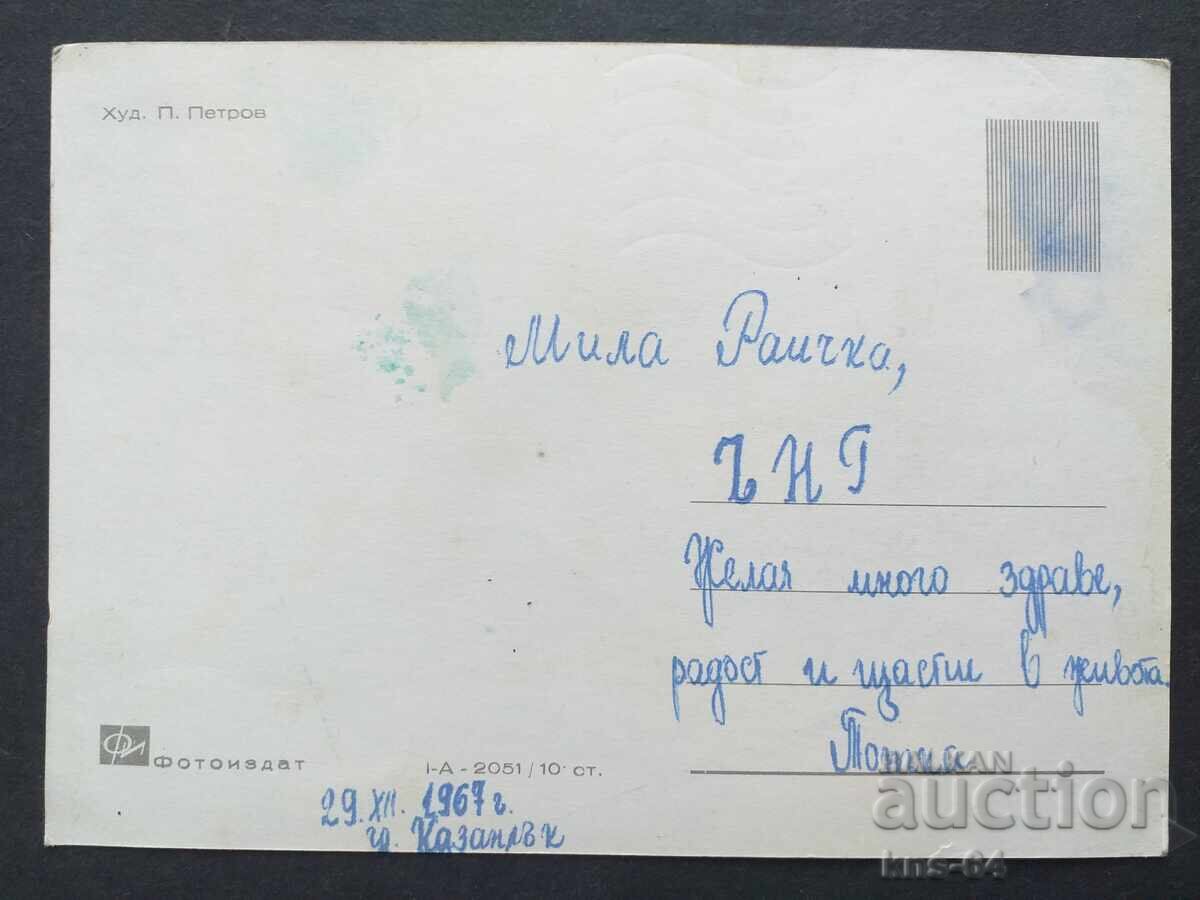 Худ. П. Петров
Мила Раичка,
ЪНГ
Желая много здраве,
радост и щастие в живота.
Фотоиздат
I-A-2051/10 ст.
29.XII. 1967 г.
гр. Казанлък
BALKAN
auction
kns-64